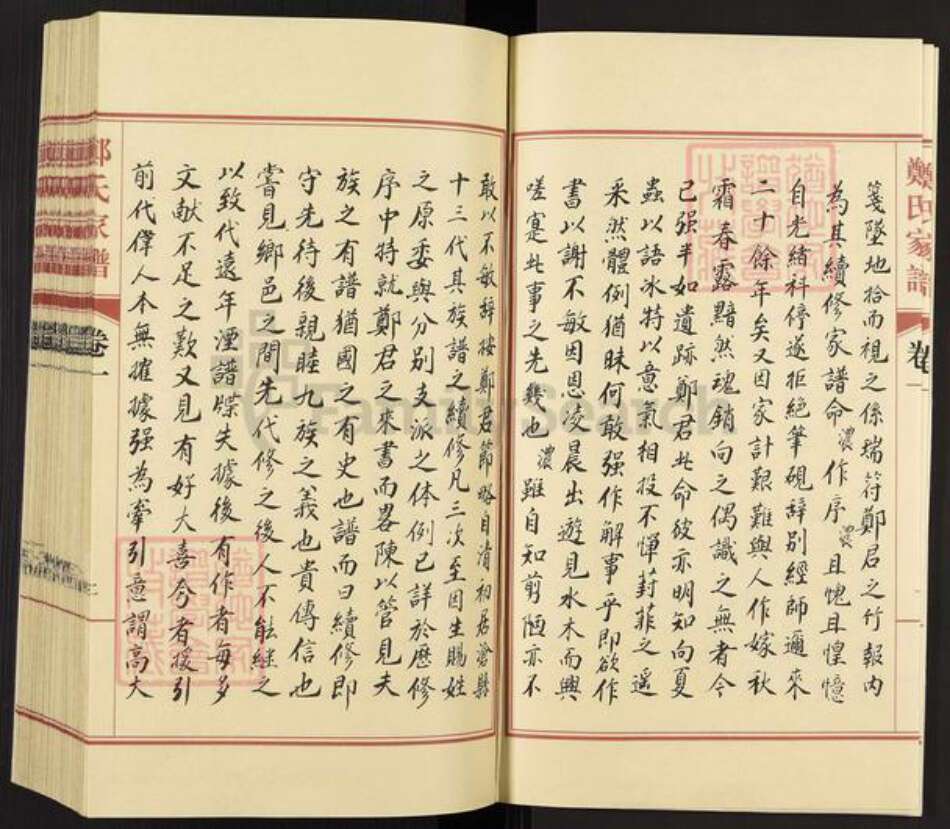 鄭氏家譜 卷一
箋墜地拾而視之係瑞符鄭君之竹報內
為其續修家譜命濃作序濃且愧且惶憶
自光緒科停遂拒絕筆硯辭別經師邇來
二十餘年矣又因家計艱難與人作嫁秋
霜春露黯然魂銷向之偶識之無者今
已强半如遺跡鄭君此命彼亦明知向夏
蟲以語冰特以意氣相投不憚葑菲之遥
采然體例猶昧何敢强作解事乎即欲作
書以謝不敏因思凌晨出遊見水木而興
嗟寔此事之先幾也濃雖自知剪陋亦不
敢以不敏辭按鄭君節略自清初居滄縣
十三代其族譜之續修凡三次至因生賜姓
之原委與分别支派之体例已詳於歷修
序中特就鄭君之來書而畧陳以管見夫
族之有譜猶國之有史也譜而曰續修即
守先待後親睦九族之義也貴傳信也
嘗見鄉邑之間先代修之後人不能繼之
以致代遠年湮譜牒失據後有作者每多
文献不足之歎又見有好大喜夸者援引
前代偉人本無摧據强為牽引意謂高大
鄭氏家譜 卷一
FamilySearch